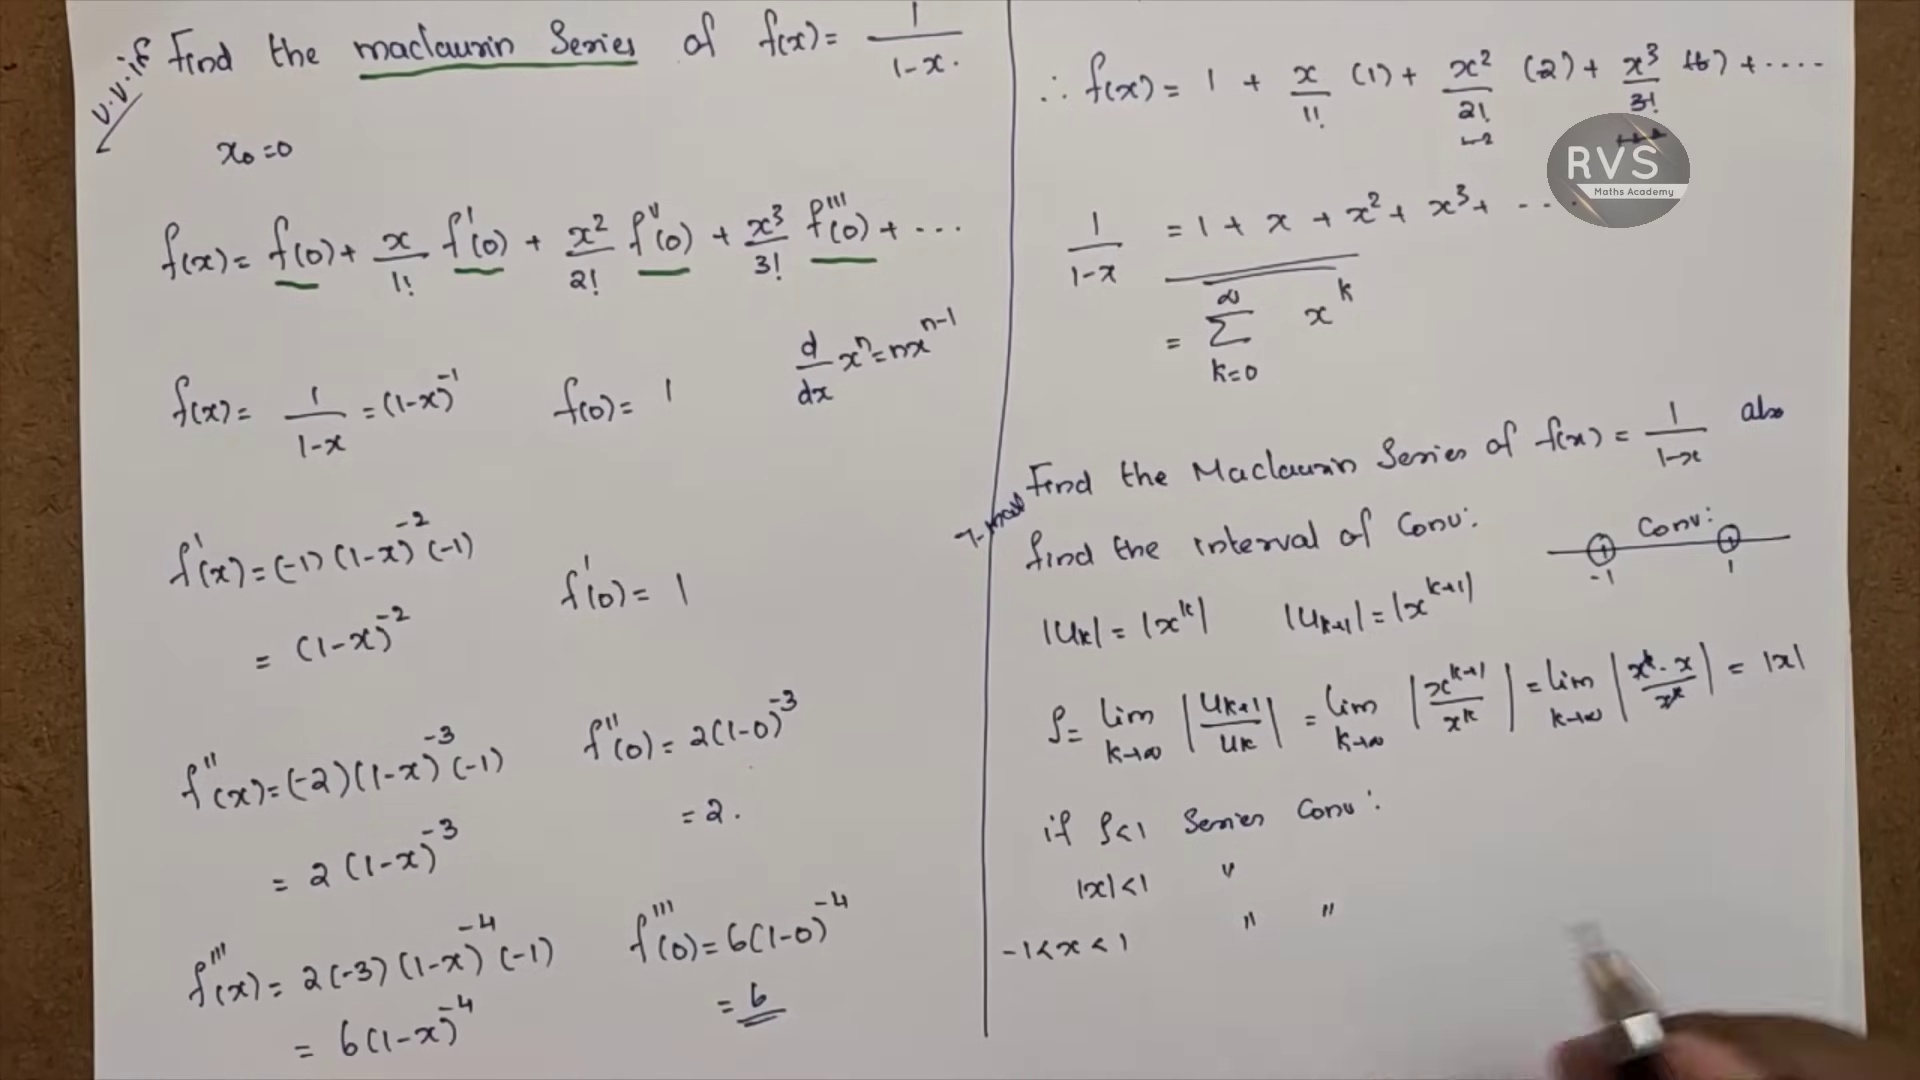 v.v.if Find the maclaurin Series of f(x) = 1/1-x.
x₀=0
f(x) = f(0) + x/1! f'(0) + x²/2! f''(0) + x³/3! f'''(0) + ...
d/dx xⁿ = nxⁿ⁻¹
f(x) = 1/1-x = (1-x)⁻¹ f(0) = 1
f'(x) = (-1) (1-x)⁻² (-1) f'(0) = 1
= (1-x)⁻²
f''(x) = (-2) (1-x)⁻³ (-1) f''(0) = 2(1-0)⁻³
= 2 (1-x)⁻³ = 2.
f'''(x) = 2(-3) (1-x)⁻⁴ (-1) f'''(0) = 6(1-0)⁻⁴
= 6(1-x)⁻⁴ = 6
∴ f(x) = 1 + x/1! (1) + x²/2! (2) + x³/3! (6) + ....
RVS
Maths Academy
1/1-x = 1 + x + x² + x³ + ....
= ∑ k=0 ∞ xᵏ
Find the Maclaurin Series of f(x) = 1/1-x also
find the interval of Conv:
Conv:
-1 1
|uₖ| = |xᵏ| |uₖ₊₁| = |xᵏ⁺¹|
ρ = lim k→∞ |uₖ₊₁/uₖ| = lim k→∞ |xᵏ⁺¹/xᵏ| = lim k→∞ |xᵏ·x/xᵏ| = |x|
if ρ<1 Series Conv:
|x|<1 "
-1<x<1 " "